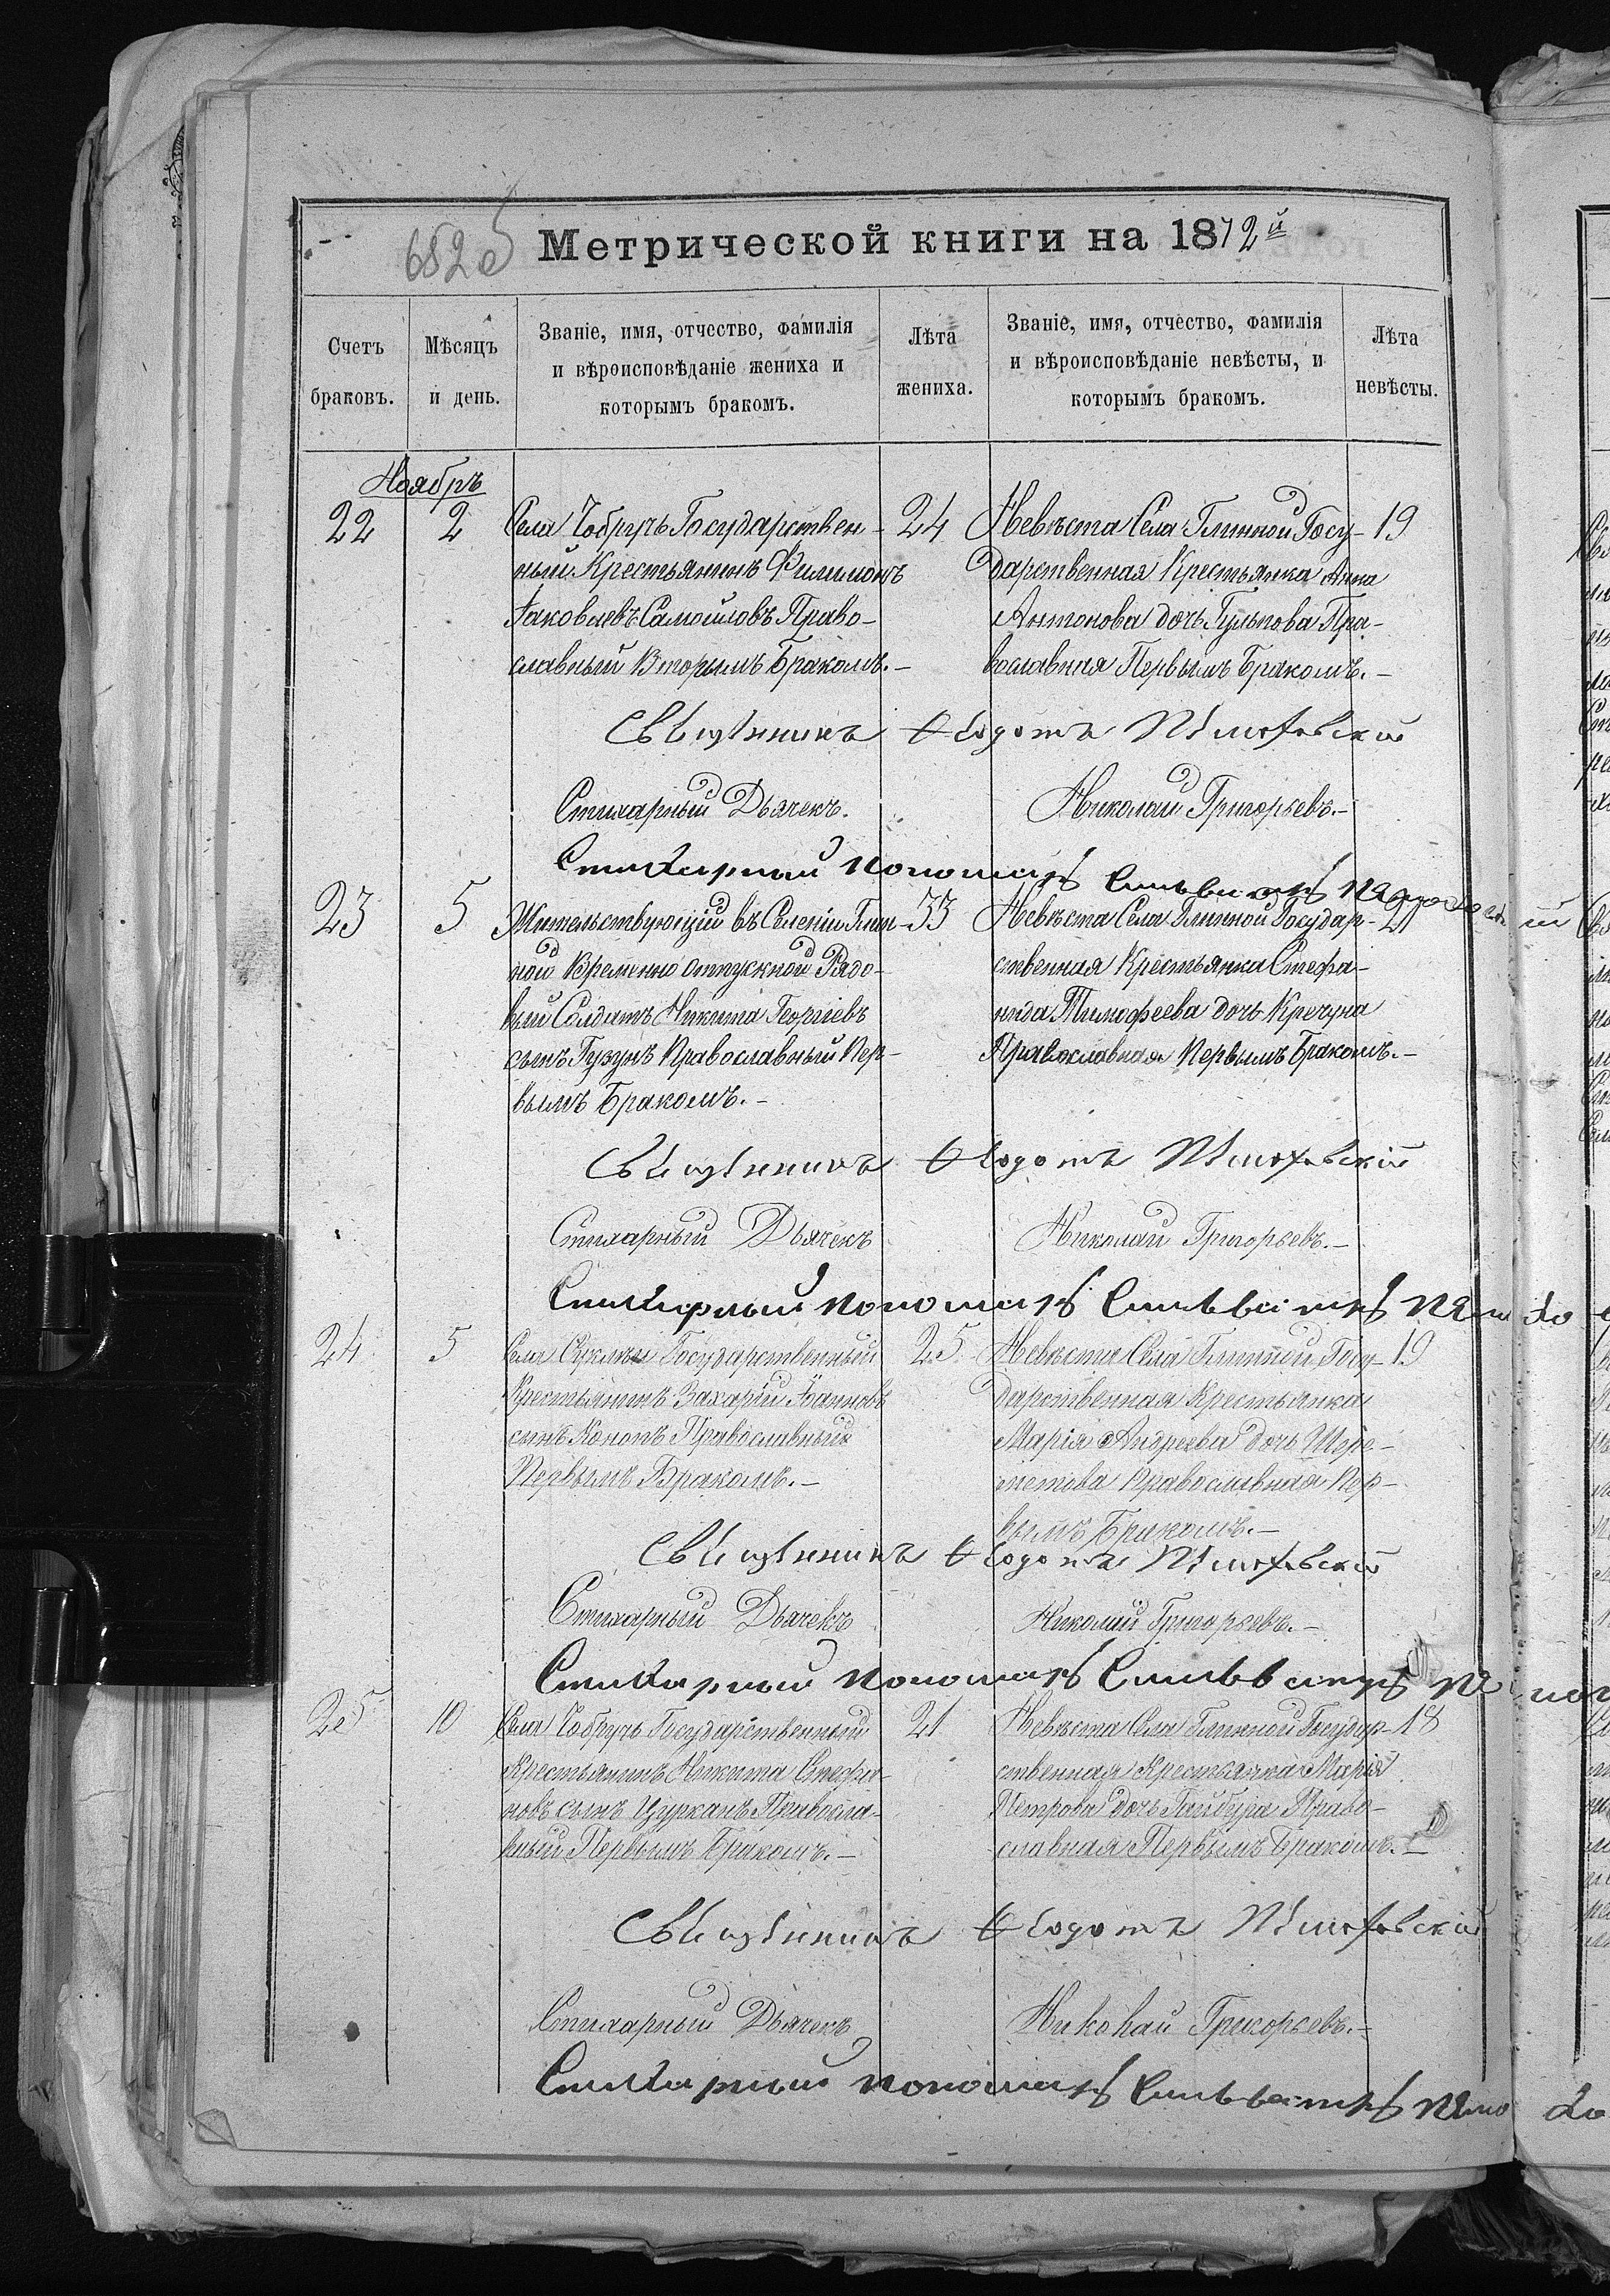 652 об
Метрической книги на 1872й
Счетъ браковъ.
Мѣсяцъ и день.
Званіе, имя, отчество, фамилія
и вѣроисповѣданіе жениха и
которымъ бракомъ.
Лѣта жениха.
Званіе, имя, отчество, фамилія
и вѣроисповѣданіе невѣсты, и
которымъ бракомъ.
Лѣта невѣсты.
Ноябрь
22 2
Села Чобручь Государствен-
ный Крестьянинъ Филимонъ
Іаковлевъ Самойловъ Право-
славный Вторымъ Бракомъ.-
24
Невѣста Села Глинной Госу-
дарственная Крестьянка Анна
Антонова дочь Гульпова Пра-
вославная Первымъ Бракомъ.-
19
Священникъ Ѳеодотъ
Стихарный Дьячекъ. Николай Григорьевъ.-
Стихарный пономарь Сильвестръ
23 5
Жительствующій въ Селеніи Глин-
ной Временно отпускной Рядо-
вый Солдатъ Никита Георгіевъ
сынъ Гузунъ Православный Пер-
вымъ Бракомъ.-
33
Невѣста Села Глинной Государ-
ственная Крестьянка Стефа-
нида Тимофеева дочь Кречуна
Православная Первымъ Бракомъ.-
21
Священникъ Ѳеодотъ
Стихарный Дьячекъ Николай Григорьевъ.-
Стихарный пономарь Сильвестръ
24 5
Села Суклеи Государственный
Крестьянинъ Захарій Іоанновъ
сынъ Кононъ Православный
Первымъ Бракомъ.-
25
Невѣста Села Глинной Госу-
дарственная Крестьянка
Марія Андреева дочь Шере-
метова Православная Пер-
вымъ Бракомъ.-
19
Священникъ Ѳеодотъ
Стихарный Дьячекъ Николай Григорьевъ.-
Стихарный пономарь Сильвестръ
25 10
Села Чобручь Государственный
Крестьянинъ Никита Стефа-
новъ сынъ Цурканъ Правосла-
вный Первымъ Бракомъ.-
21
Невѣста Села Глинной Государ-
ственная Крестьянка Марія
Петрова дочь Гайбура Право-
славная Первымъ Бракомъ.-
18
Священникъ Ѳеодотъ
Стихарный Дьячекъ Николай Григорьевъ.-
Стихарный пономарь Сильвестръ